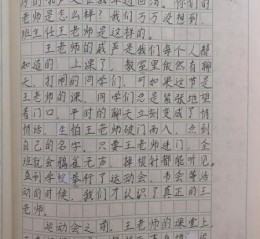 老师是怎么样？我们万万没想到，
班主任王老师是这样的。
王老师的威严是我们每个人都
知道的。上课了，教室里依然有聊
天、打闹的同学们，可如果这节是
王老师的课，同学们总是紧张地望
着门口，平时的聊天立刻变成了悄
悄话，生怕王老师破门而入，点到
自己的名字。只要王老师进门，全
班就会鸦雀无声，
直到学校举行了运动会、书会等活
动的时候，我们才认识了真正的王
老师。
运动会之前，王老师的课堂上